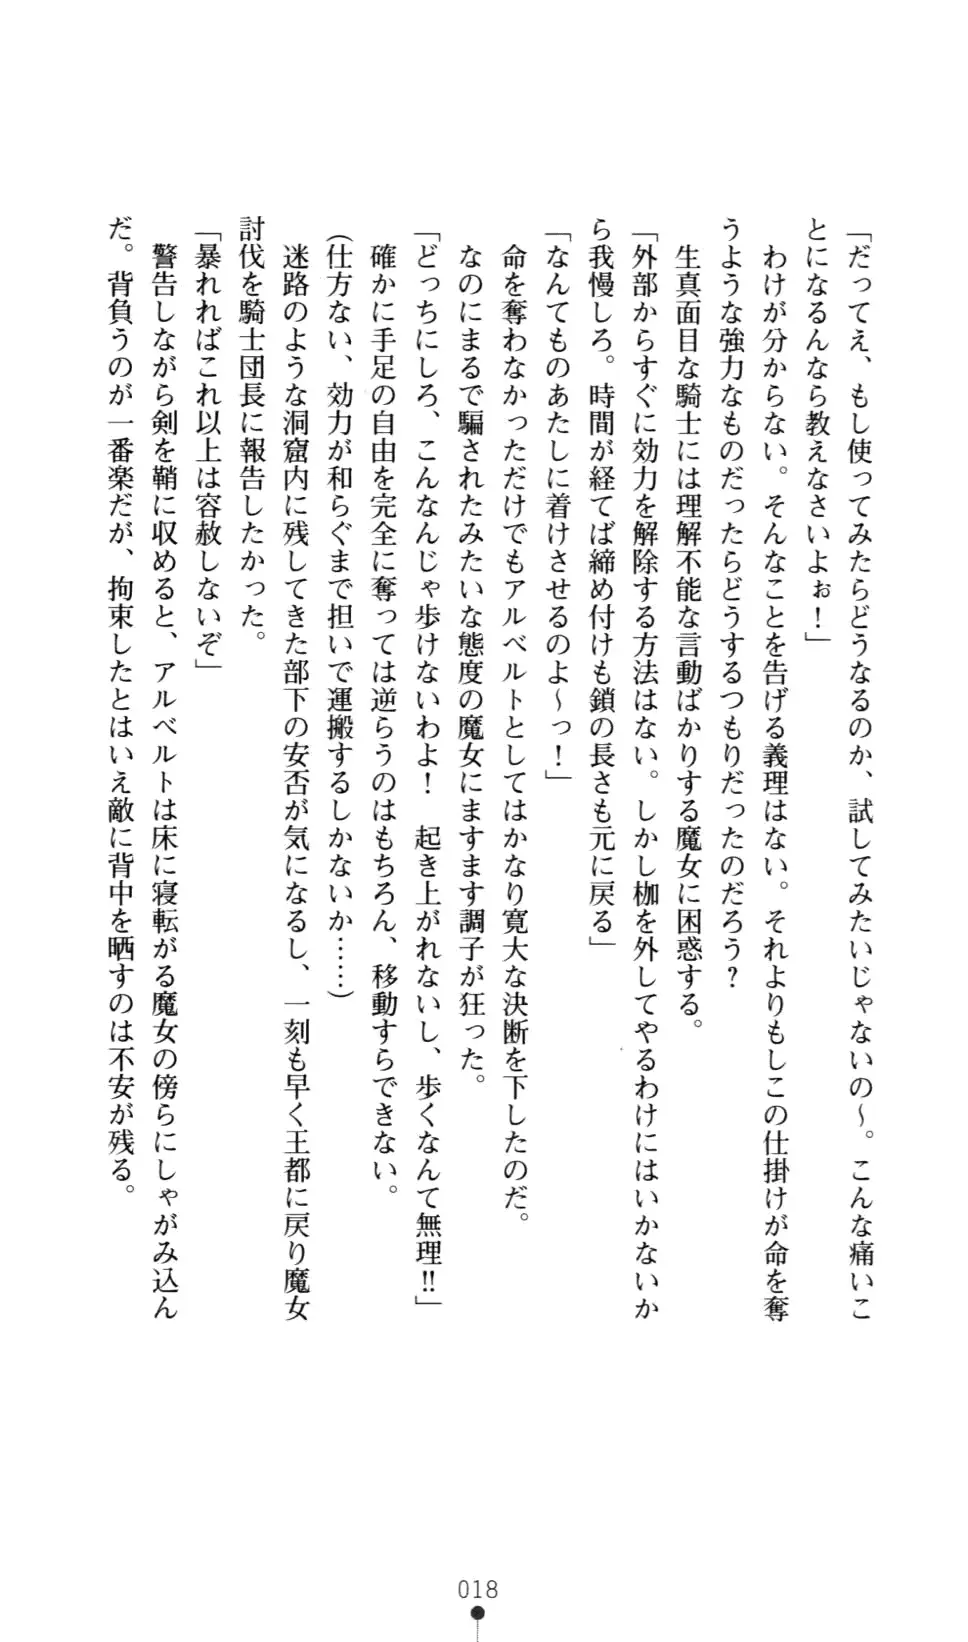 「だってえ、もし使ってみたらどうなるのか、試してみたいじゃないの～。こんな痛いこ
とになるんなら教えなさいよぉ！」
　わけが分からない。そんなことを告げる義理はない。それよりもしこの仕掛けが命を奪
うような強力なものだったらどうするつもりだったのだろう？
　生真面目な騎士には理解不能な言動ばかりする魔女に困惑する。
「外部からすぐに効力を解除する方法はない。しかし枷を外してやるわけにはいかないか
ら我慢しろ。時間が経てば締め付けも鎖の長さも元に戻る」
「なんてものあたしに着けさせるのよ～っ！」
　命を奪わなかっただけでもアルベルトとしてはかなり寛大な決断を下したのだ。
　なのにまるで騙されたみたいな態度の魔女にますます調子が狂った。
「どっちにしろ、こんなんじゃ歩けないわよ！　起き上がれないし、歩くなんて無理!!」
　確かに手足の自由を完全に奪っては逆らうのはもちろん、移動すらできない。
（仕方ない、効力が和らぐまで担いで運搬するしかないか……）
　迷路のような洞窟内に残してきた部下の安否が気になるし、一刻も早く王都に戻り魔女
討伐を騎士団長に報告したかった。
「暴れればこれ以上は容赦しないぞ」
　警告しながら剣を鞘に収めると、アルベルトは床に寝転がる魔女の傍らにしゃがみ込ん
だ。背負うのが一番楽だが、拘束したとはいえ敵に背中を晒すのは不安が残る。
018